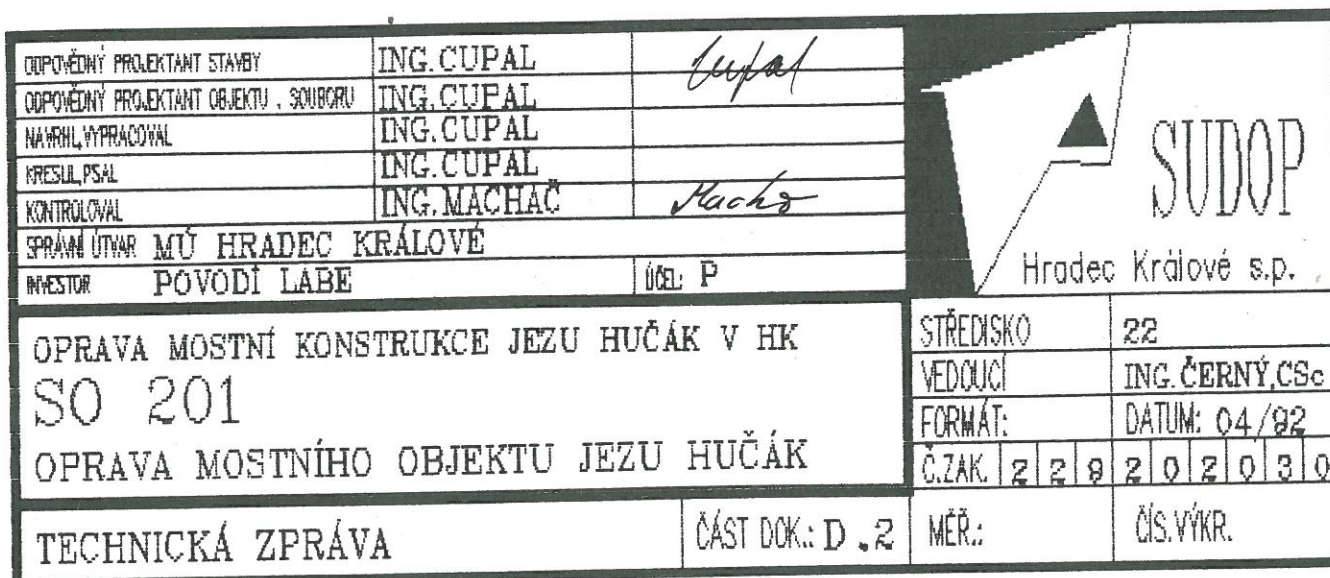 ODPOVĚDNÝ PROJEKTANT STAVBY ING. CUPAL Cupal
ODPOVĚDNÝ PROJEKTANT OBJEKTU , SOUBORU ING. CUPAL
NAVRHL,VYPRACOVAL ING. CUPAL
KRESLIL,PSAL ING. CUPAL
KONTROLOVAL ING. MACHAČ
SPRÁVNÍ ÚTVAR MÚ HRADEC KRÁLOVÉ
INVESTOR POVODÍ LABE ÚČEL: P
SUDOP
Hradec Králové s.p.
OPRAVA MOSTNÍ KONSTRUKCE JEZU HUČÁK V HK
SO 201
OPRAVA MOSTNÍHO OBJEKTU JEZU HUČÁK
STŘEDISKO 22
VEDOUCÍ ING. ČERNÝ,CSc
FORMÁT: DATUM: 04/92
Č.ZAK. 2 2 9 2 0 2 0 3 0
TECHNICKÁ ZPRÁVA ČÁST DOK.: D.2 MĚŘ.: ČÍS.VÝKR.